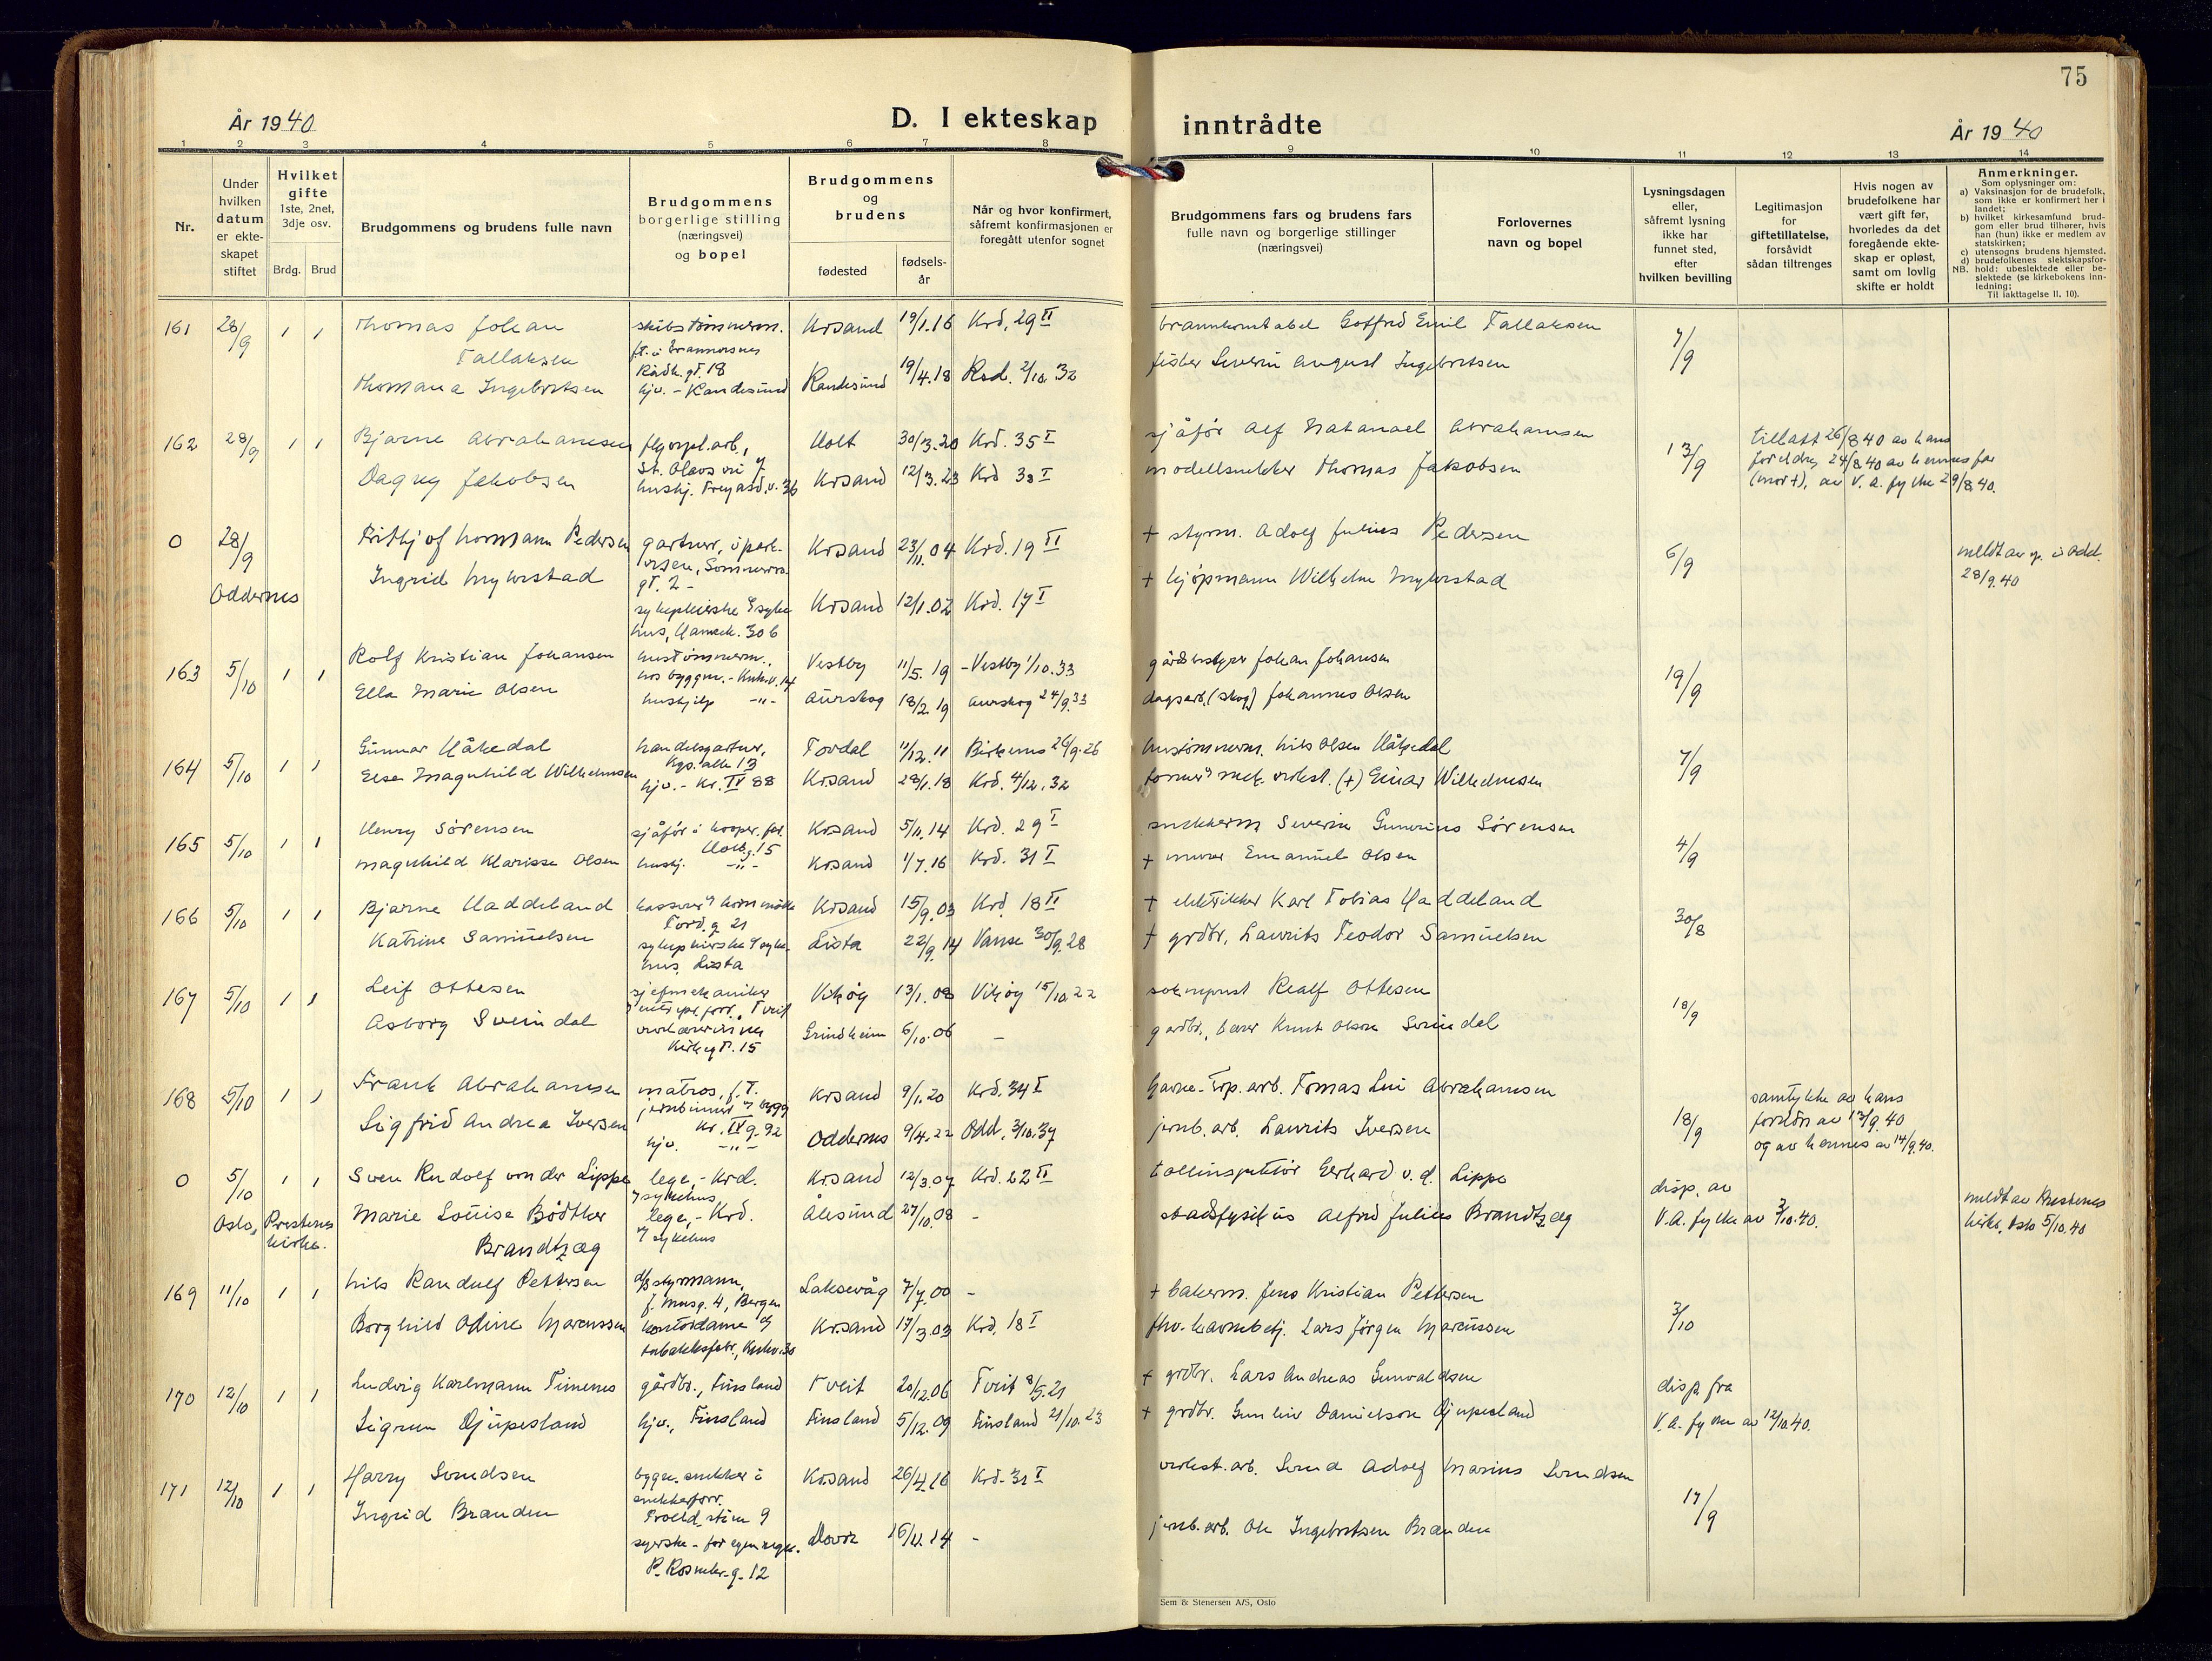 75
År 1940
D. I ekteskap inntrådte
År 1940
1 2 3 4 5 6 7 8 9 10 11 12 13 14
Nr.
Under hvilken datum er ekteskapet stiftet
Hvilket gifte 1ste, 2net, 3dje osv.
Brdg. Brud
Brudgommens og brudens fulle navn
Brudgommens borgerlige stilling (næringsvei) og bopel
Brudgommens og brudens
fødested
fødselsår
Når og hvor konfirmert, såfremt konfirmasjonen er foregått utenfor sognet
Brudgommens fars og brudens fars fulle navn og borgerlige stillinger (næringsvei)
Forlovernes navn og bopel
Lysningsdagen eller, såfremt lysning ikke har funnet sted, efter hvilken bevilling
Legitimasjon for giftetillatelse, forsåvidt sådan tiltrenges
Hvis nogen av brudefolkene har vært gift før, hvorledes da det foregående ekteskap er opløst, samt om lovlig skifte er holdt
Anmerkninger.
Som oplysninger om:
a) Vaksinasjon for de brudefolk, som ikke er konfirmert her i landet;
b) hvilket kirkesamfund brudgom eller brud tilhører, hvis han (hun) ikke er medlem av statskirken;
c) utensogns brudens hjemsted.
d) brudefolkenes slektskapsforhold: ubeslektede eller beslektede (se kirkebokens innledning;
NB.
Til iakttagelse II, 10).
161 28/9 1 1 Thomas Johan Tallaksen skibstømmerm. Krsand 19/1.16 Krd, 29 II brannkonstabel Gotfred Emil Tallaksen 7/9
Rådh.gt. 18
Thomana Ingebretsen hjv. - Randesund Randesund 19/4.18 Rand. 2/10.32 fisker Severin August Ingebretsen
162 28/9 1 1 Bjarne Abrahamsen Holt 30/3.20 Krd. 35 I sjåfør Alf Natanael Abrahamsen 13/9 tillatt 26/8 40 av hans
St. Olavs vei 7
Dagny Jakobsen Krsand 12/3.23 Krd 38 I modellsnekker Thomas Jakobsen foreldre, 24/8.40 av hennes far
(mor +), av V.A. fylke 29/8.40.
0 28/9 Fritjof Normann Pedersen gartner, i park- Krsand 23/11.04 Krd. 19 II + styrm. Adolf Julius Pedersen 6/9 meldt av sp. i Odd.
28/9.40
Oddernes Ingrid Myhrstad gt. 2 - + kjøpmann Wilhelm Myhrstad
Krsand 12/1.02 Krd. 17 I
hus,
163 5/10 1 1 Rolf Kristian Johansen hustømmerm., Vestby 11/5.19 - Vestby 1/10.33 gårdsbestyrer Johan Johansen 19/9
hos byggm. - Kirkev. 14
Ella Marie Olsen hushjelp -"- Aurskog 18/2.19 Aurskog 24/9.33 dagsarb. (skog) Johannes Olsen
164 5/10 1 1 Gunnar Håkedal handelsgartner, Tovdal 11/12.11 Birkenes 26/9.26 hustømmerm. Nils Olsen Håkedal 7/9
Kgs. alle 13
Else Magnhild Wilhelmsen hjv. - Kr. IV 88 Krsand 28/1.18 Krd. 4/12.32 former mek. verkst. (+) Einar Wilhelmsen
165 5/10 1 1 Henry Sørensen sjåfør i kooper. før. Krsand 5/11.14 Krd. 29 I snekkerm. Severin Gunerius Sørensen 4/9
Holbg. 15
Magnhild Klarisse Olsen hushj. -"- Krsand 1/7.16 Krd. 31 I + murer Emanuel Olsen
166 5/10 1 1 Bjarne Haddeland Krsand 15/9.03 Krd. 18 II + elektriker Karl Tobias Haddeland 30/8
Tord.g. 21
Katrine Samuelsen sykepleierske Lista 22/9.14 Vanse 30/9.28 + grdbr. Laurits Teodor Samuelsen
hus, Lista
167 5/10 1 1 Leif Ottesen sjefmekaniker Vikøy 13/1.08 Vikøy 15/10.22 sokneprest Realf Ottesen 18/9
Asborg Sveindal Grindheim 6/10.06 - gårdbr., lærer Knut Olsen Sveindal
Kirkegt. 15
168 5/10 1 1 Frank Abrahamsen matros, f.T. Krsand 9/1.20 Krd. 34 I havne-Exp. arb. Tomas Levi Abrahamsen 18/9 samtykke av hans
Kr. IV g. 92
Sigfrid Andrea Iversen hjv. -"- Oddernes 9/4.22 Odd., 3/10.37 jernb. arb. Laurits Iversen foreldre av 13/9.40
og av hennes av 14/9.40.
0 5/10 1 1 Sven Rudolf von der Lippe lege, - Krd. sykehus Krsand 12/3.07 Krd. 22 II tollinspektør Gerhard v. d. Lippe disp. av
Oslo, Prestenes kirke. Marie Louise Bødtker Brandtzæg lege, - Krd. sykehus Ålesund 27/10.08 - stadsfysikus Alfred Julius Brandtzæg V.A. fylke av 3/10.40. meldt av Prestenes
kirke, Oslo 5/10.40
169 11/10 1 1 Nils Randulf Pettersen styrmann, Laksevåg 7/7.00 - + bakerm. Jens Kristian Pettersen 3/10
4, Bergen
Borghild Odine Marcussen kontordame Krsand 17/3.03 Krd, 18 I fhv. havnebetj. Lars Jørgen Marcussen
tobakksfabr., Kirkev. 30
170 12/10 1 1 Ludvig Karlmann Timenes gårdbr., Finsland Tveit 20/12.06 Tveit 8/5.21 + grdbr. Lars Andreas Gunvaldsen disp. fra
Sigrun Djupesland hjv., Finsland Finsland 5/12.09 Finsland 21/10.23 + grdbr. Gunleiv Danielsen Djupesland V.A. fylke av 12/10.40.
171 12/10 1 1 Harry Svendsen bygn. snekker i Krsand 26/4.16 Krd. 31 I verkst. arb. Svend Adolf Marius Svendsen 17/9
snekkerforr.
Ingrid Branden syerske - for egen regn. Dovre 16/11.14 - jernb. arb. Ole Ingebretsen Branden
P. Rosenkr. g. 12
Sem & Stenersen A/S, Oslo